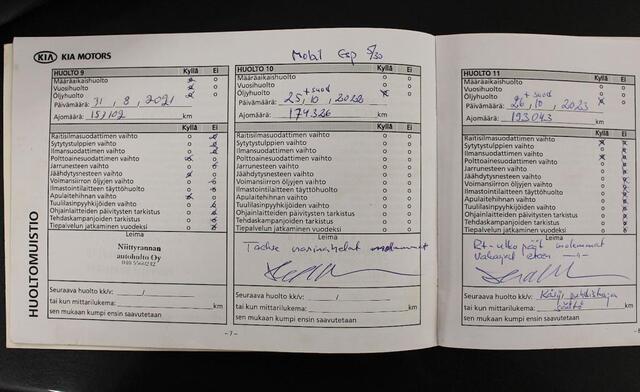 KIA KIA MOTORS
HUOLTOMUISTIO
HUOLTO 9 Kyllä Ei
Määräaikaishuolto
Vuosihuolto
Öljyhuolto
Päivämäärä: 31, 8, 2021
Ajomäärä: km
Kyllä Ei
Raitisilmasuodattimen vaihto
Sytytystulppien vaihto
Ilmansuodattimen vaihto
Polttoainesuodattimen vaihto
Jarrunesteen vaihto
Jäähdytysnesteen vaihto
Voimansiirron öljyjen vaihto
Ilmastointilaitteen täyttöhuolto
Apulaitehihnan vaihto
Tuulilasinpyyhkijöiden vaihto
Ohjainlaitteiden päivitysten tarkistus
Tehdaskampanjoiden tarkistus
Tiepalvelun jatkaminen vuodeksi
Leima
Niittyrannan
autohuolto Oy
Seuraava huolto kk/v: /
tai kun mittarilukema: km
sen mukaan kumpi ensin saavutetaan
- 7 -
Mobil Esp 5/30
HUOLTO 10 Kyllä Ei
Määräaikaishuolto
Vuosihuolto
Öljyhuolto + suod
Päivämäärä: 25, 10, 2022
Ajomäärä: 174326 km
Kyllä Ei
Raitisilmasuodattimen vaihto
Sytytystulppien vaihto
Ilmansuodattimen vaihto
Polttoainesuodattimen vaihto
Jarrunesteen vaihto
Jäähdytysnesteen vaihto
Voimansiirron öljyjen vaihto
Ilmastointilaitteen täyttöhuolto
Apulaitehihnan vaihto
Tuulilasinpyyhkijöiden vaihto
Ohjainlaitteiden päivitysten tarkistus
Tehdaskampanjoiden tarkistus
Tiepalvelun jatkaminen vuodeksi
Leima
Seuraava huolto kk/v: /
tai kun mittarilukema: km
sen mukaan kumpi ensin saavutetaan
HUOLTO 11 Kyllä Ei
Määräaikaishuolto
Vuosihuolto
Öljyhuolto + suod
Päivämäärä: 26, 10, 2023
Ajomäärä: 193043 km
Kyllä Ei
Raitisilmasuodattimen vaihto
Sytytystulppien vaihto
Ilmansuodattimen vaihto
Polttoainesuodattimen vaihto
Jarrunesteen vaihto
Jäähdytysnesteen vaihto
Voimansiirron öljyjen vaihto
Ilmastointilaitteen täyttöhuolto
Apulaitehihnan vaihto
Tuulilasinpyyhkijöiden vaihto
Ohjainlaitteiden päivitysten tarkistus
Tehdaskampanjoiden tarkistus
Tiepalvelun jatkaminen vuodeksi
Leima
molemmat
Seuraava huolto kk/v:
tai kun mittarilukema:
sen mukaan kumpi ensin saavutetaan